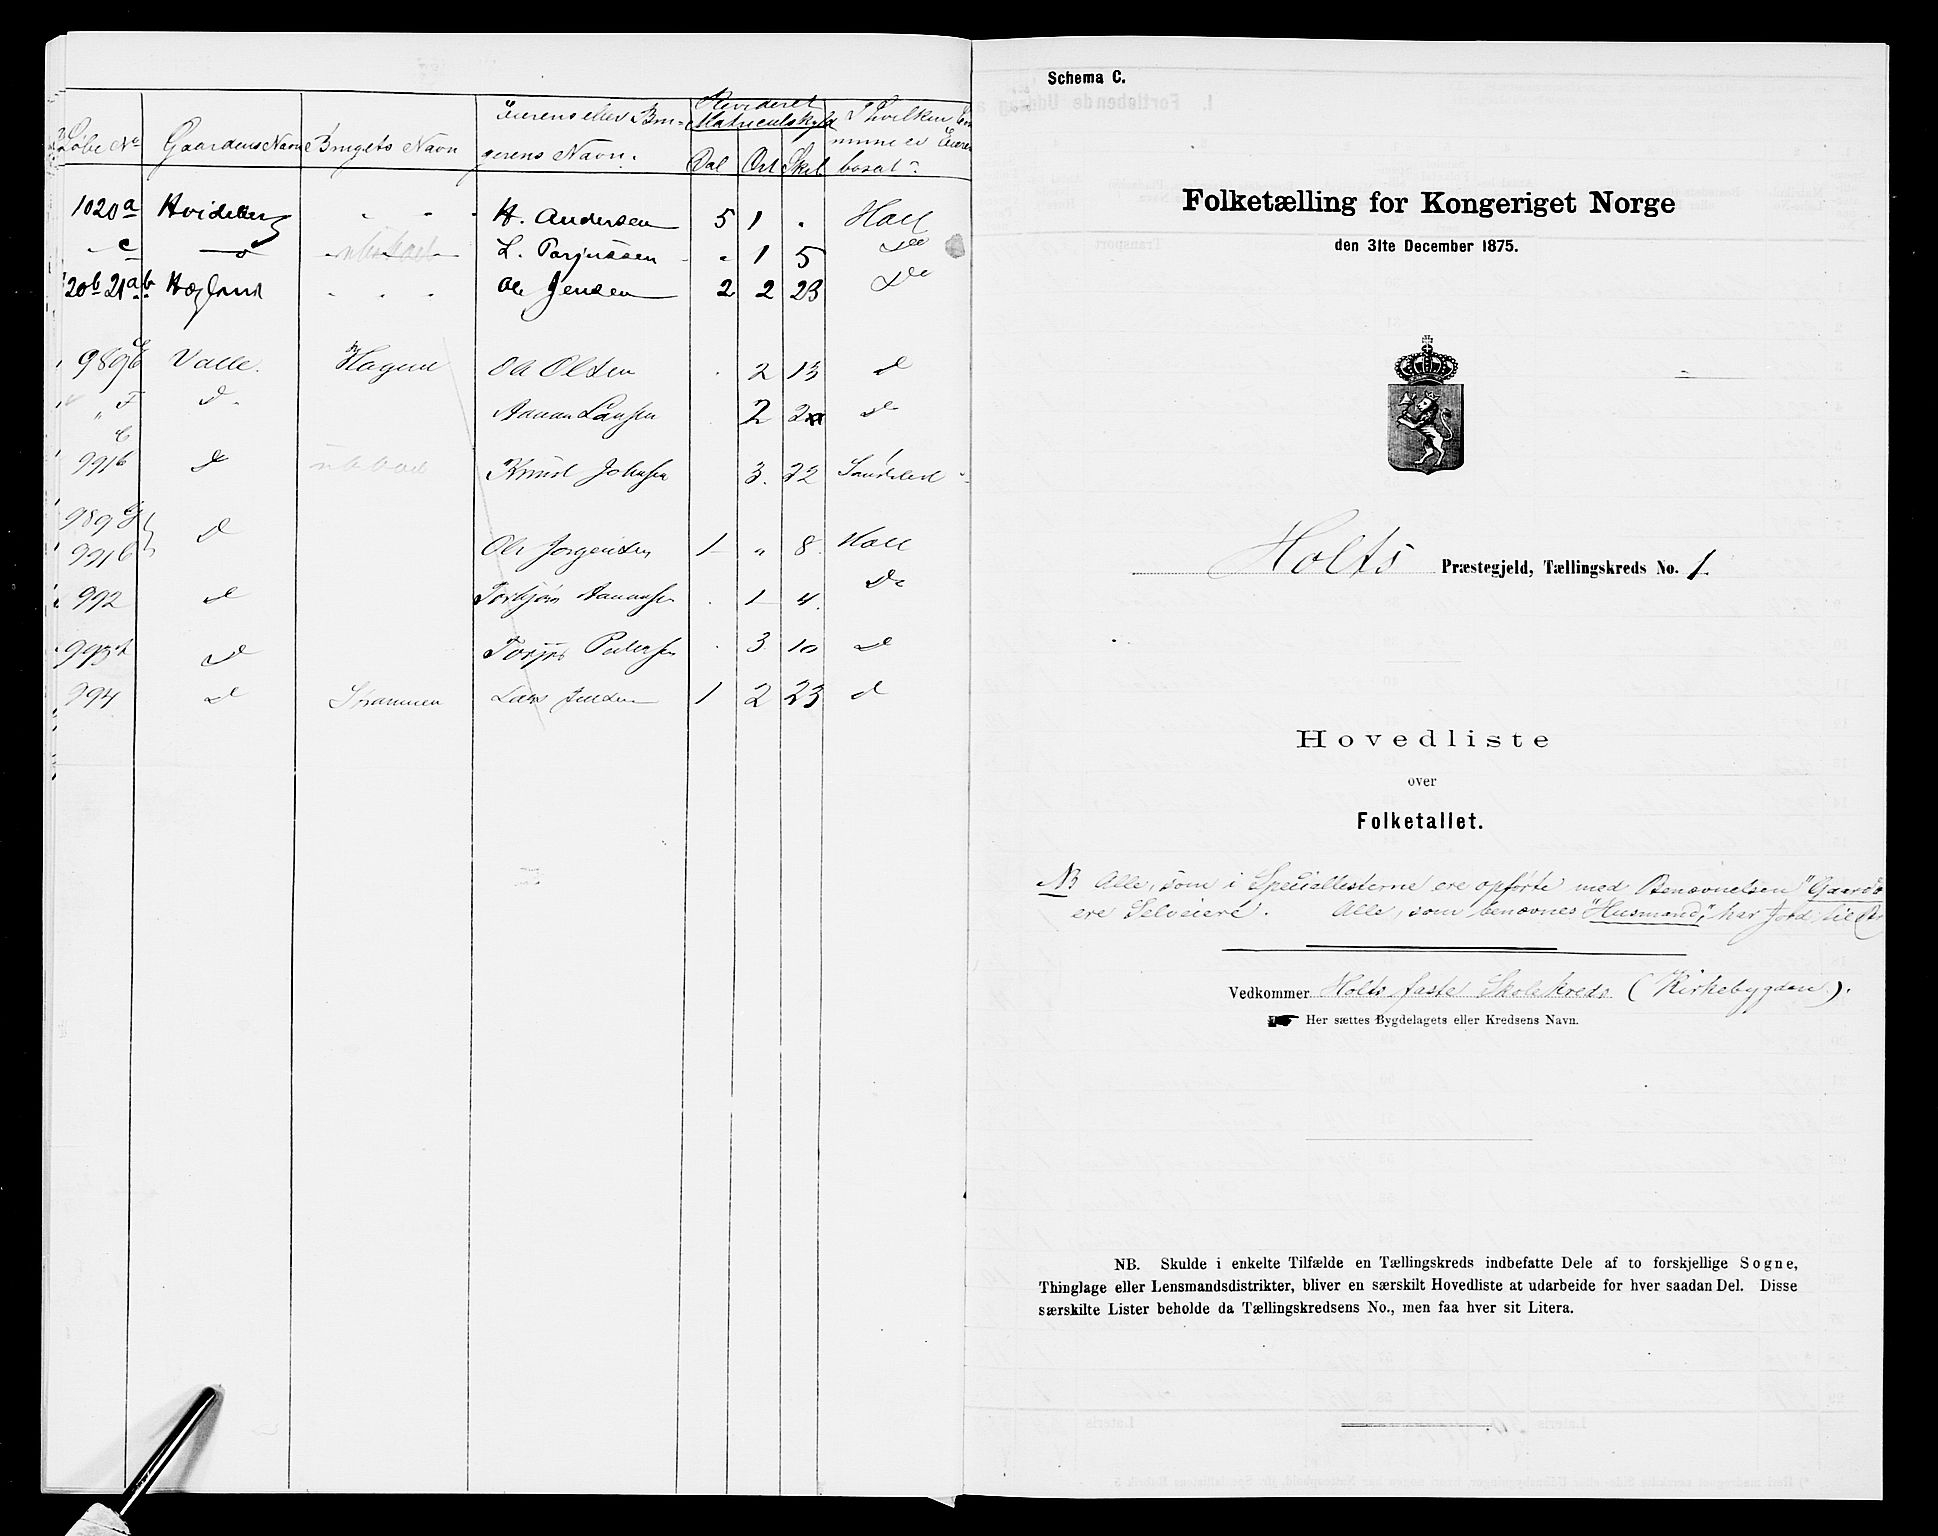 Løbe No Gaardens Navn Brugets Navn Eierens eller Bru- Revideret I hvilken
gerens Navn. Matriculskyld
Dal Ort Skil bosat?
1020a H. Andersen 5 1 . Holt
c L. 1 5 Do
20b 21ab Ole Jensen 2 2 23 Do
989 Valle. Ole Olsen . 2 13 d
" F d 2 d
991b d Knud Johnsen 3. 22
989
991b d Ole Jørgensen 1 " 8 Holt
992 d . 1 4. Do
d 3 10 d
994 d Strømmen Lars Jensen 1 2 23 d
Schema C.
Folketælling for Kongeriget Norge
den 31te December 1875.
Holts Præstegjeld, Tællingskreds No. 1.
Hovedliste
over
Folketallet.
NB Alle, som i Speciallisterne ere opførte med Benævnelsen "Gaardb
ere Selveiere. Alle, som benævnes "Husmand", har Jord til
Vedkommer Holts faste Skolekreds (Kirkebygden).
Her sættes Bygdelagets eller Kredsens Navn.
NB. Skulde i enkelte Tilfælde en Tællingskreds indbefatte Dele af to forskjellige Sogne,
Thinglage eller Lensmandsdistrikter, bliver en særskilt Hovedliste at udarbeide for hver saadan Del. Disse
særskilte Lister beholde da Tællingskredsens No., men faa hver sit Litera.